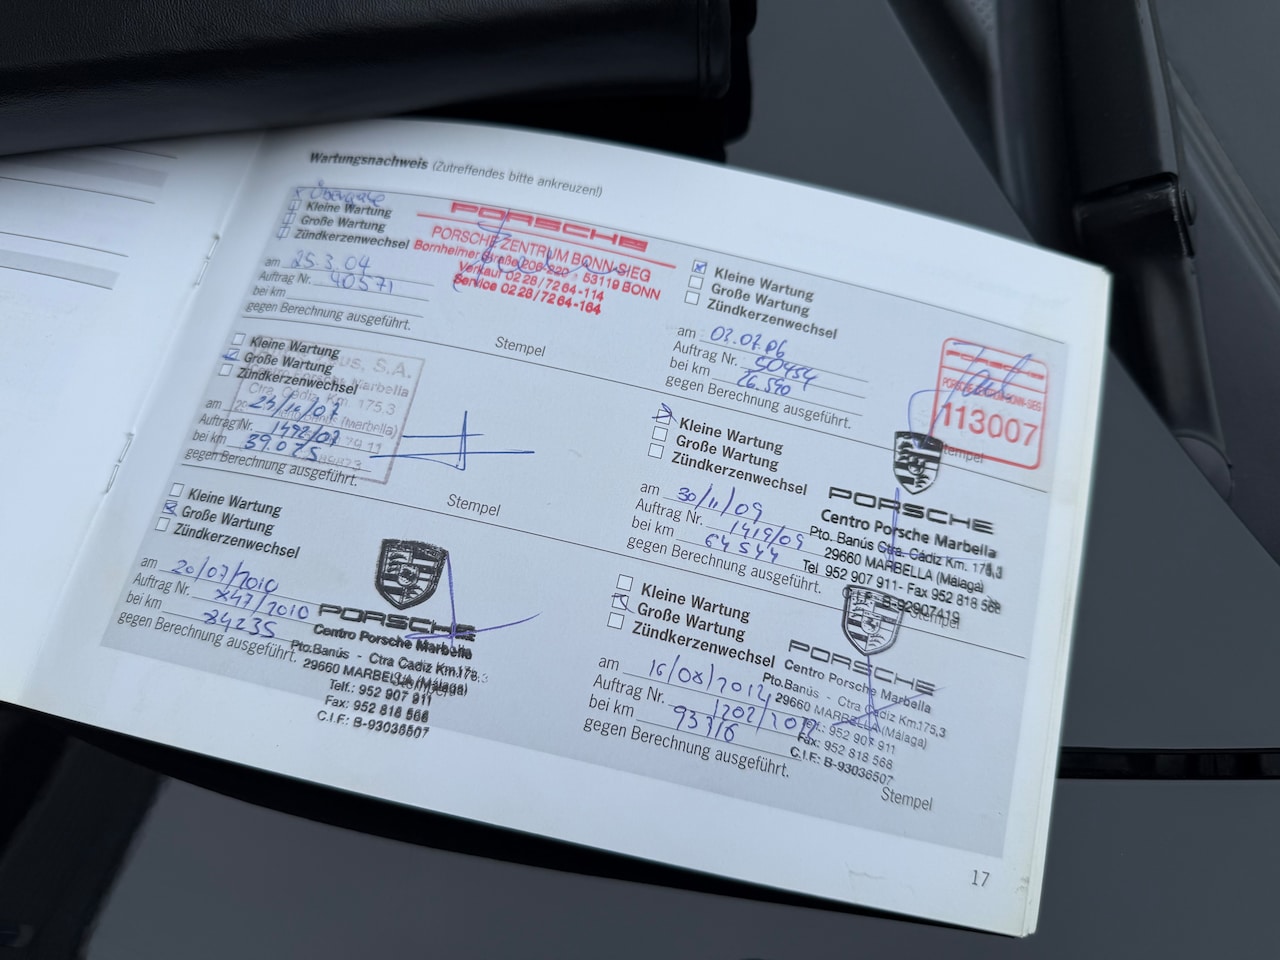 Wartungsnachweis (Zutreffendes bitte ankreuzen!)
x Übergabe
Kleine Wartung
Große Wartung
Zündkerzenwechsel
am 25.3.04
Auftrag Nr. 40571
bei km
gegen Berechnung ausgeführt.
PORSCHE
PORSCHE ZENTRUM BONN-SIEG
Bornheimer Straße 208-220 · 53119 BONN
Verkauf 02 28 / 72 64-114
Service 02 28 / 72 64-164
Stempel
Kleine Wartung
Große Wartung
Zündkerzenwechsel
am 03.07.06
Auftrag Nr. 50454
bei km 26.590
gegen Berechnung ausgeführt.
PORSCHE
113007
Stempel
Kleine Wartung
Große Wartung
Zündkerzenwechsel
am
Auftrag Nr. 1492/07
bei km 39.025
gegen Berechnung ausgeführt.
S.A.
Porsche Marbella
Ctra. Cádiz Km. 175,3
(Marbella)
Stempel
Kleine Wartung
Große Wartung
Zündkerzenwechsel
am 30/11/09
Auftrag Nr. 1419/09
bei km 64544
gegen Berechnung ausgeführt.
PORSCHE
Centro Porsche Marbella
Pto. Banús Ctra. Cádiz Km. 175,3
29660 MARBELLA (Málaga)
Tel 952 907 911- Fax 952 818 568
C.I.F: B-92907419
Stempel
Kleine Wartung
Große Wartung
Zündkerzenwechsel
am 20/07/2010
Auftrag Nr. 847/2010
bei km 84235
gegen Berechnung ausgeführt.
PORSCHE
Centro Porsche Marbella
Pto.Banús - Ctra Cadiz Km.175,3
29660 MARBELLA (Málaga)
Telf.: 952 907 911
Fax: 952 818 568
C.I.F.: B-93036507
Kleine Wartung
Große Wartung
Zündkerzenwechsel
am 16/08/2012
Auftrag Nr. 1202/2012
bei km 93716
gegen Berechnung ausgeführt.
PORSCHE
Centro Porsche Marbella
Pto.Banús - Ctra Cadiz Km.175,3
29660 MARBELLA (Málaga)
Telf.: 952 907 911
Fax: 952 818 568
C.I.F.: B-93036507
Stempel
17